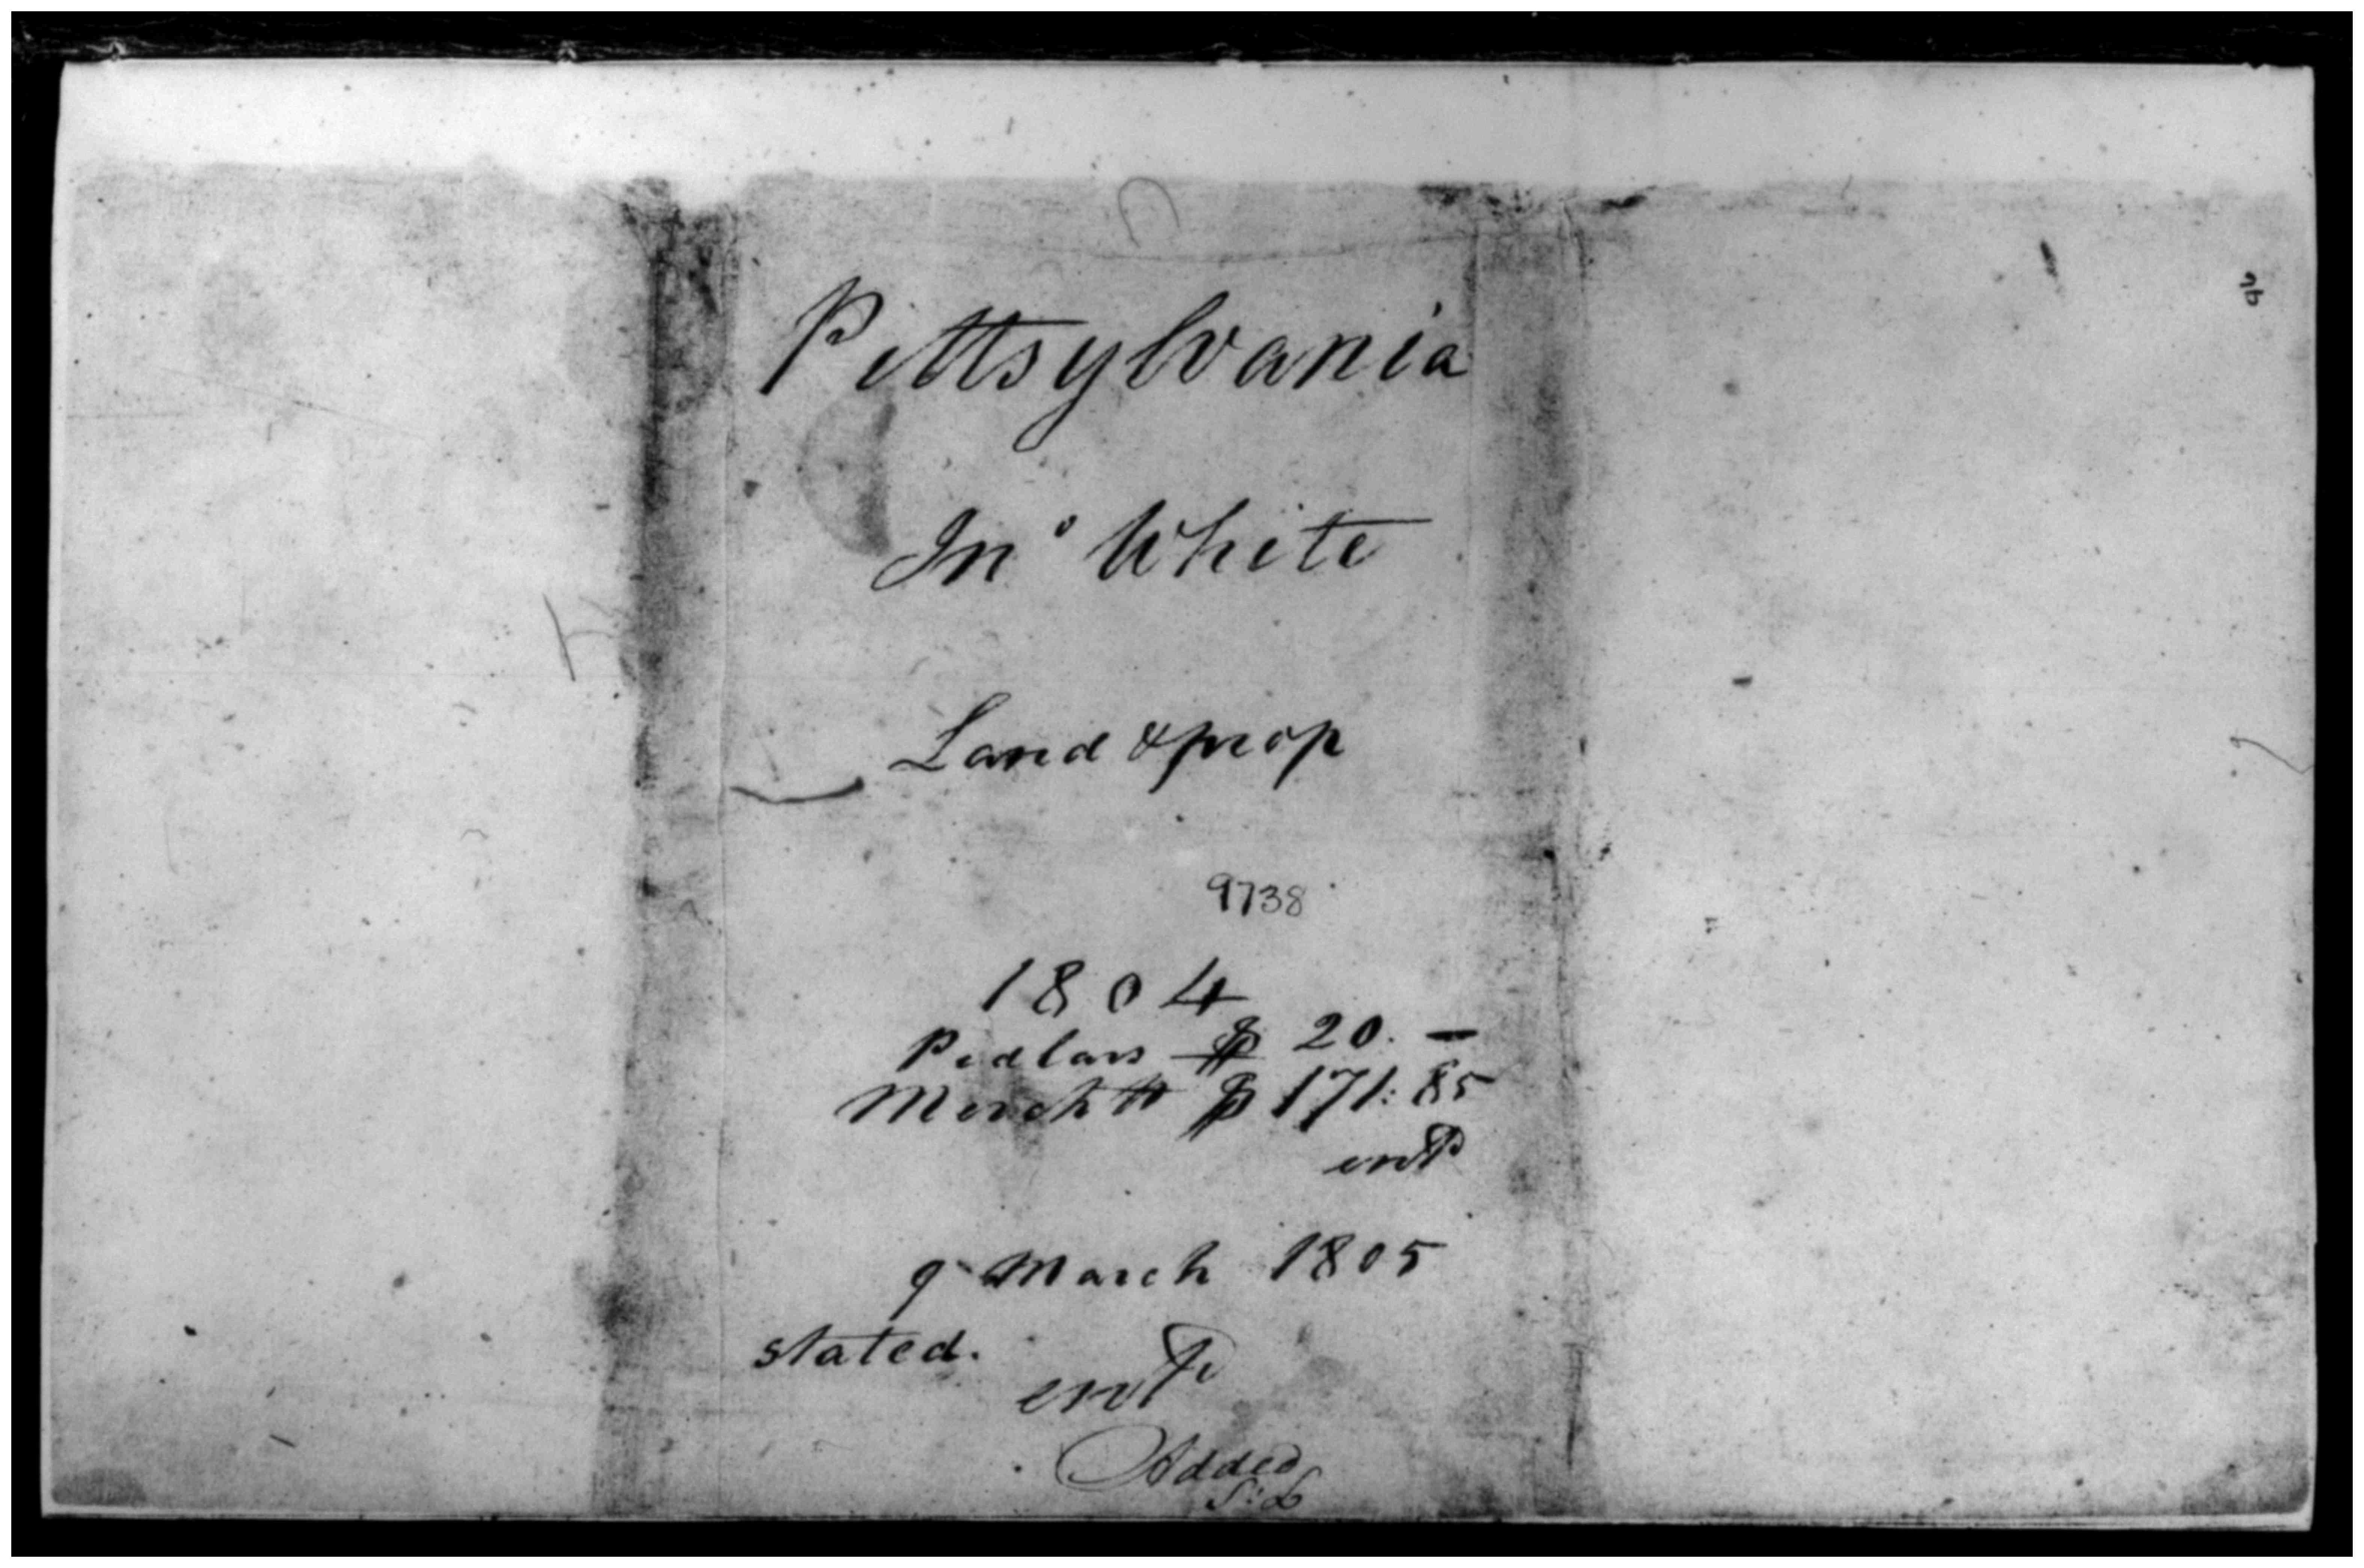 Pittsylvania
Jnº White
Land & prop
9738
1804
Pedlars $ 20. —
Merchts $ 171:85
9 March 1805
stated.
Added